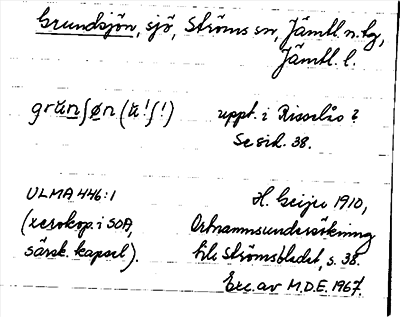 Grundsjön, sjö, Ströms sn, Jämtl. n. tg,
Jämtl. l.
grúnʃøn (ú!ʃ!) uppt. i Risselås?
Se sid. 38.
ULMA 446:1 H. Geijer 1910,
(xerokop. i SOA, Ortnamnsundersökning
särsk. kapsel). till Strömsbladet, s. 38.
Exc. av M.D.E. 1967.